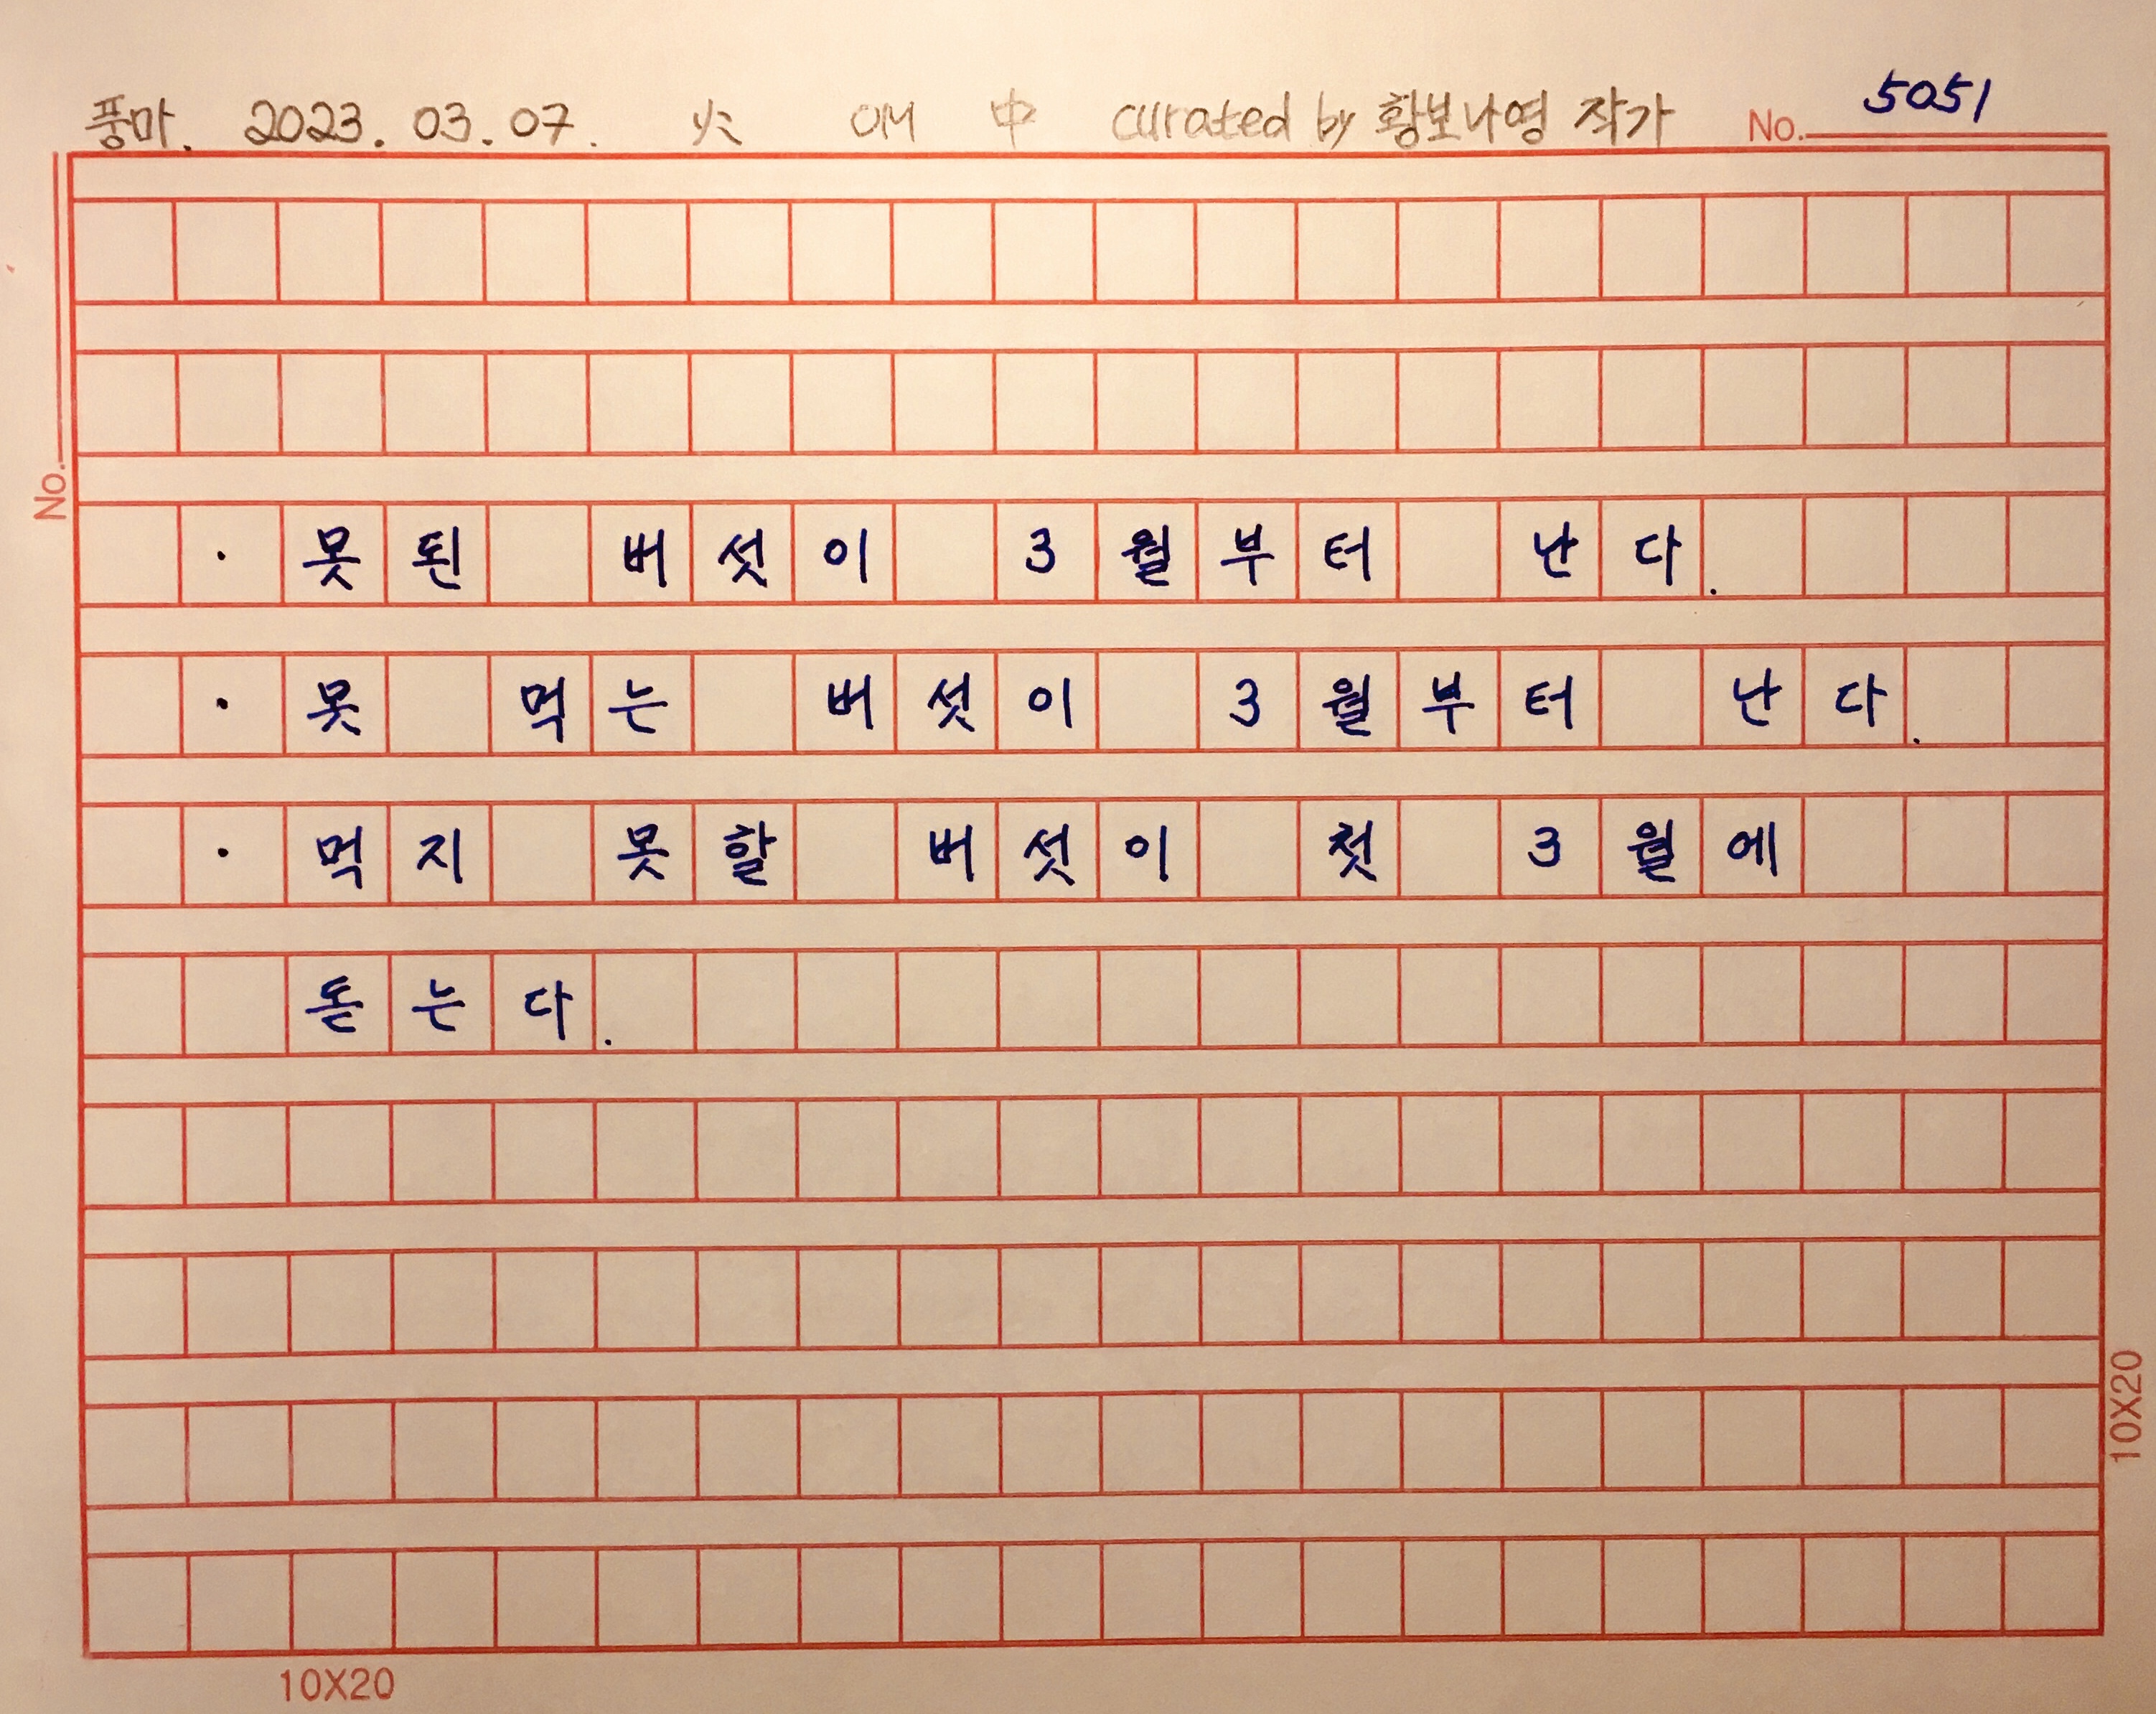 풍마. 2023. 03. 07. 火 OM 中 curated by 황보나영 작가 No. 5051
No.
· 못된 버섯이 3월부터 난다.
· 못 먹는 버섯이 3월부터 난다.
· 먹지 못할 버섯이 첫 3월에
돋는다.
10X20
10X20